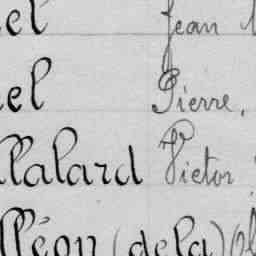 el Jean
el Pierre,
llalard Victor
lléon (de la)